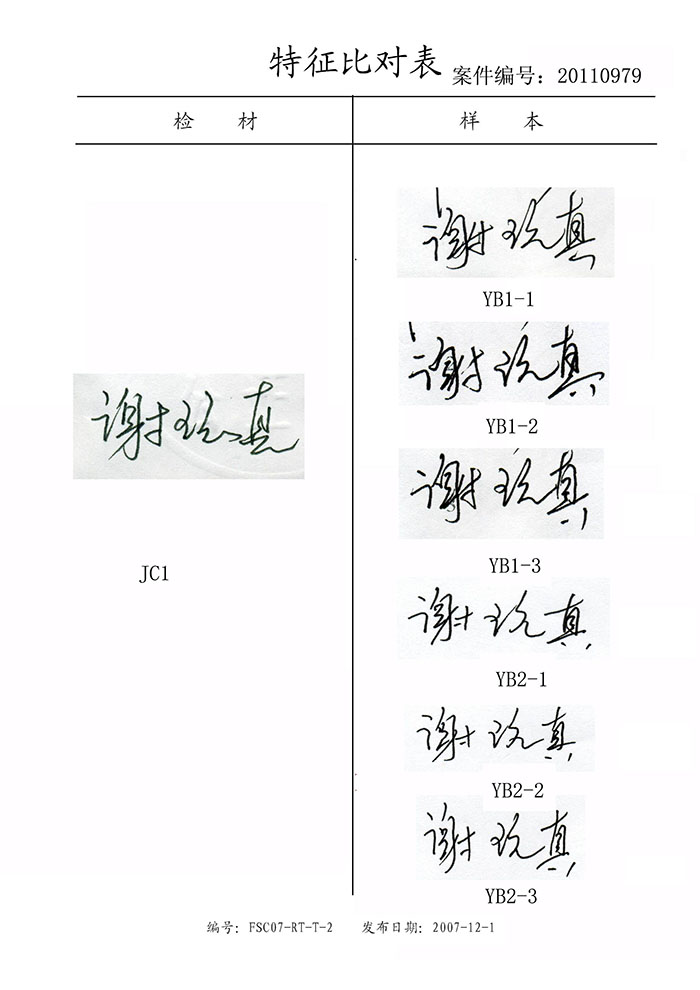 特征比对表 案件编号：20110979
检 材
样 本
谢玩真
YB1-1
谢玩真
YB1-2
谢玩真
JC1
谢玩真
YB1-3
谢玩真
YB2-1
谢玩真
YB2-2
谢玩真
YB2-3
编号：FSC07-RT-T-2 发布日期：2007-12-1